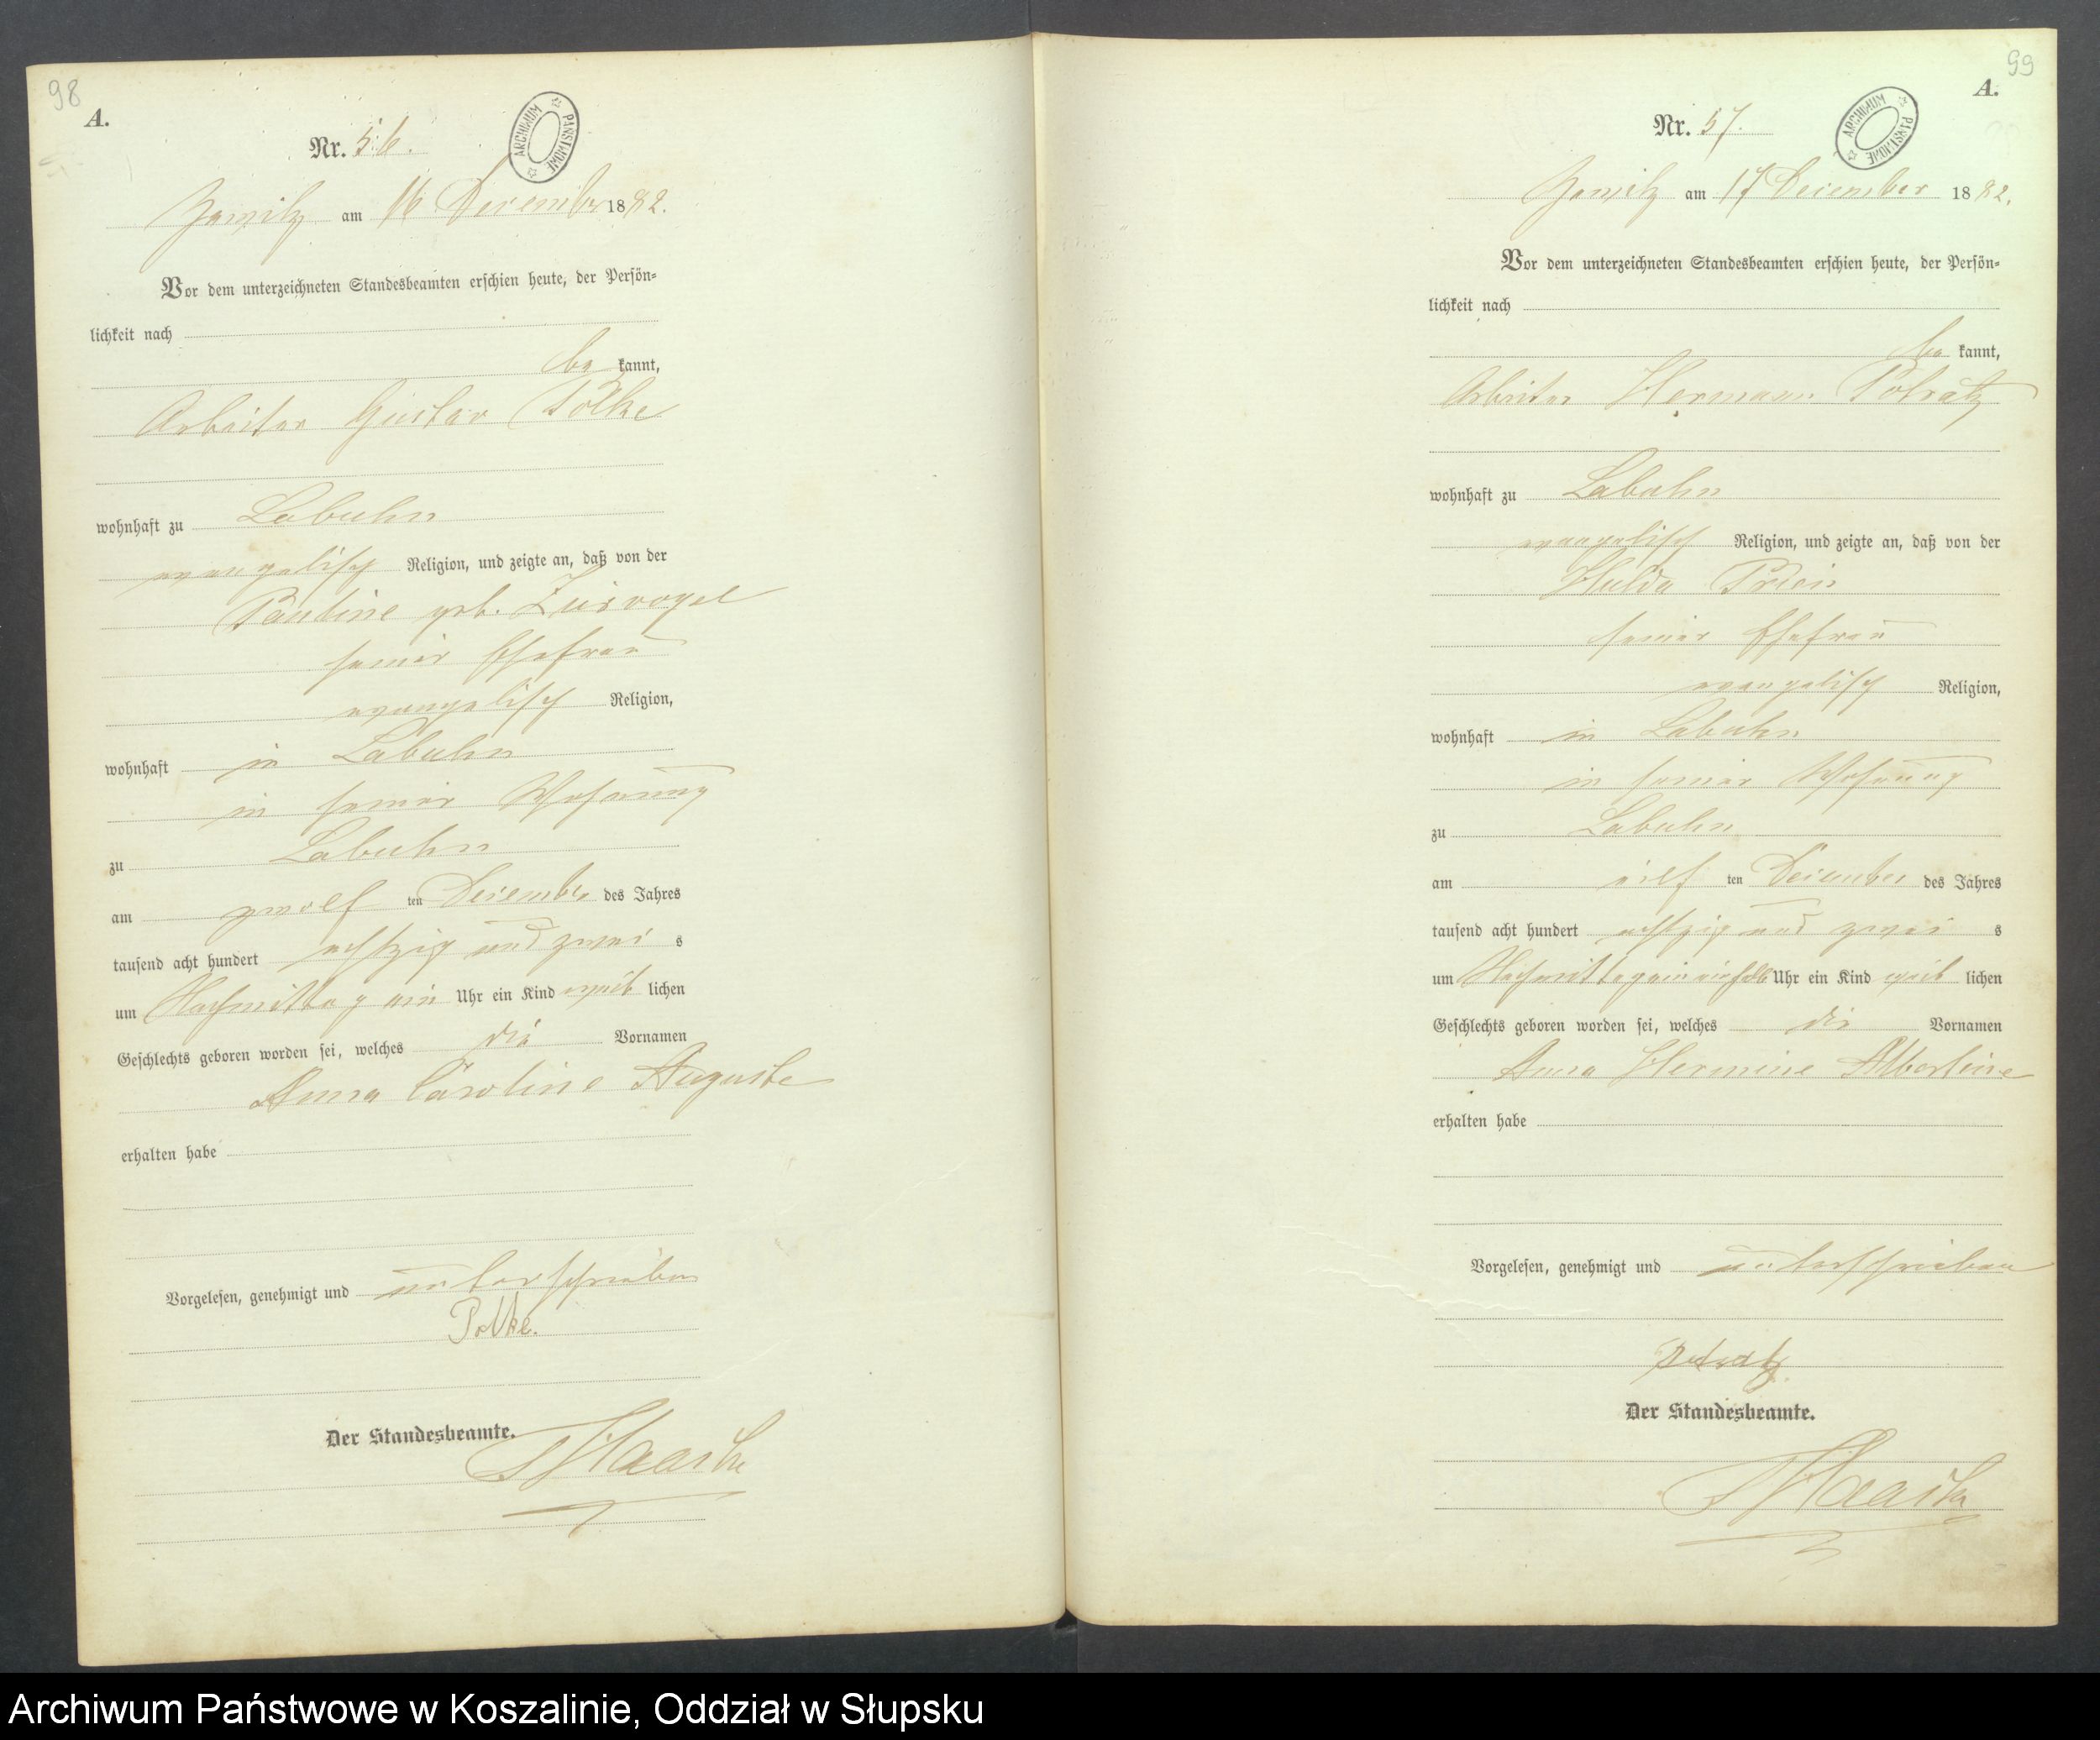 98
A.
Nr. 56.
ARCHIWUM PAŃSTWOWE
am 16 December 1882.
Vor dem unterzeichneten Standesbeamten erschien heute, der Persön=
lichkeit nach
be kannt,
Arbeiter Gustav Polke
wohnhaft zu Labuhn
evangelisch Religion, und zeigte an, daß von der
Pauline geb.
seiner Ehefrau
evangelisch Religion,
wohnhaft in Labuhn
in seiner Wohnung
zu Labuhn
am zwölf ten December des Jahres
tausend acht hundert achtzig und zwei s
um Nachmittag ein Uhr ein Kind weib lichen
Geschlechts geboren worden sei, welches die Vornamen
Anna Caroline Auguste
erhalten habe
Vorgelesen, genehmigt und unterschrieben
Polke.
Der Standesbeamte.
99
A.
Nr. 57.
ARCHIWUM PAŃSTWOWE
am 17 December 1882.
Vor dem unterzeichneten Standesbeamten erschien heute, der Persön=
lichkeit nach
be kannt,
Arbeiter Hermann Potratz
wohnhaft zu Labuhn
evangelisch Religion, und zeigte an, daß von der
Hulda
seiner Ehefrau
evangelisch Religion,
wohnhaft in Labuhn
in seiner Wohnung
zu Labuhn
am eilf ten December des Jahres
tausend acht hundert achtzig und zwei s
um Nachmittag ein einhalb Uhr ein Kind weib lichen
Geschlechts geboren worden sei, welches die Vornamen
Anna Hermine Albertine
erhalten habe
Vorgelesen, genehmigt und unterschrieben
Potratz.
Der Standesbeamte.
Archiwum Państwowe w Koszalinie, Oddział w Słupsku